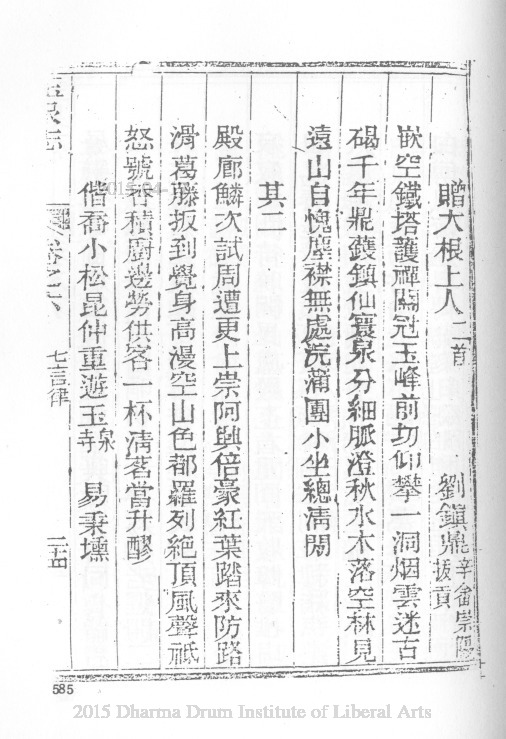 贈大根上人二首 劉鎮鼎辛酉崇陽拔貢
嵌空鐵塔護禪關冠玉峰前切仰攀一洞烟雲迷古
碣千年鼎鑊鎮仙寰泉分細脈澄秋水木落空林見
遠山自愧塵襟無處浣蒲團小坐總清閒
其二
殿廊鱗次試周遭更上崇阿興倍豪紅葉踏來防路
滑葛藤扳到覺身高漫空山色都羅列絕頂風聲祗
怒號香積廚邊勞供客一杯清茗當升醪
偕喬小松昆仲重遊玉泉寺 易秉壎
玉泉志 卷之六 七言律 二十四
585
2015 Dharma Drum Institute of Liberal Arts